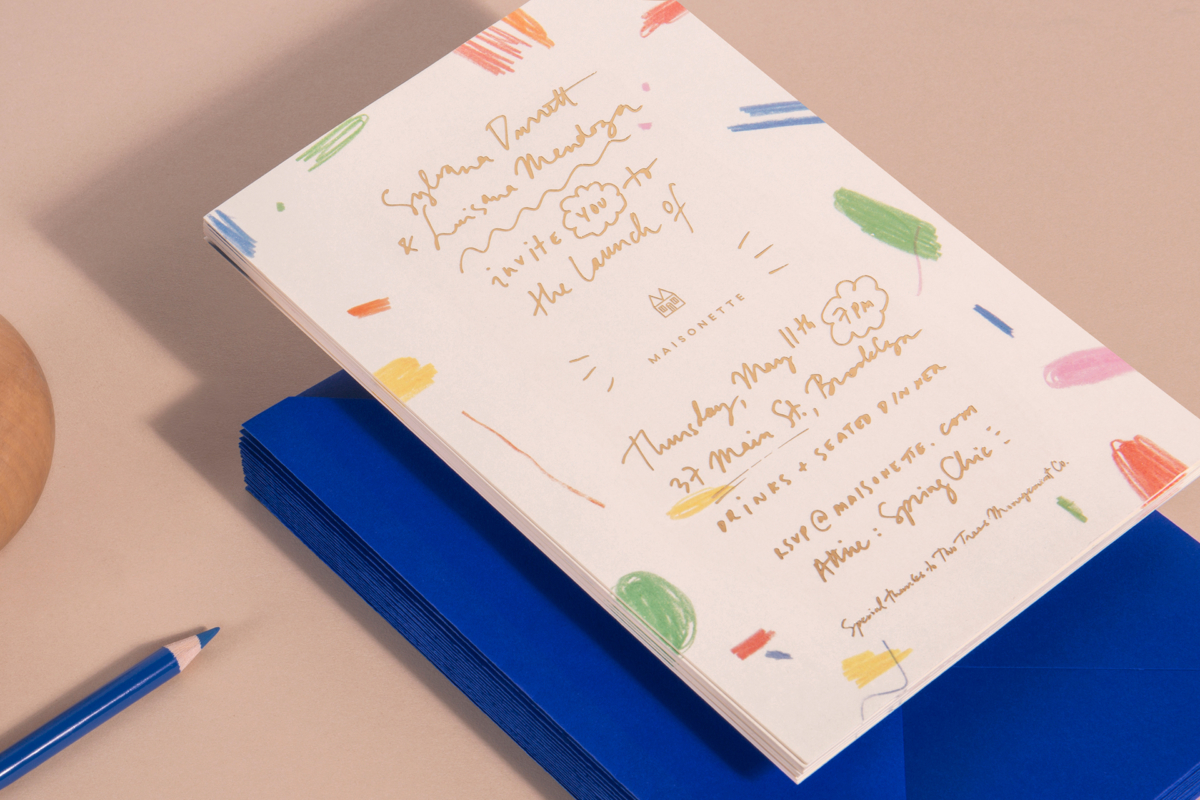 Sylvana Durrett
& Luisana Mendoza
invite YOU to
the launch of
MAISONETTE
Thursday, May 11th 7PM
37 Main St., Brooklyn
DRINKS + SEATED DINNER
RSVP@MAISONETTE.COM
Attire: Spring Chic
Special thanks to Two Trees Management Co.